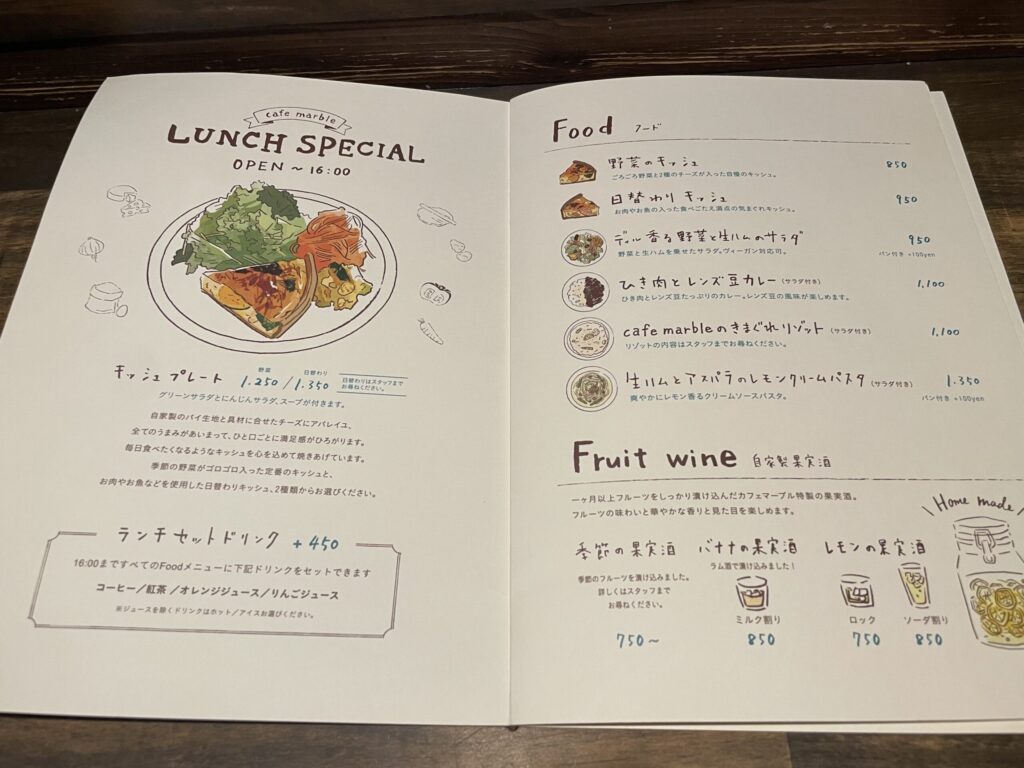 cafe marble
LUNCH SPECIAL
OPEN ~ 16:00
キッシュプレート
野菜 1.250 / 日替わり 1.350
日替わりはスタッフまで
お尋ねください。
グリーンサラダとにんじんサラダ、スープが付きます。
自家製のパイ生地と具材に合せたチーズにアパレイユ、
全てのうまみがあいまって、ひと口ごとに満足感がひろがります。
毎日食べたくなるようなキッシュを心を込めて焼きあげています。
季節の野菜がゴロゴロ入った定番のキッシュと、
お肉やお魚などを使用した日替わりキッシュ、2種類からお選びください。
ランチセットドリンク +450
16:00まですべてのFoodメニューに下記ドリンクをセットできます
コーヒー/紅茶 /オレンジジュース/りんごジュース
※ジュースを除くドリンクはホット/アイスお選びください。
Food フード
野菜のキッシュ 850
ごろごろ野菜と2種のチーズが入った自慢のキッシュ。
日替わり キッシュ 950
お肉やお魚の入った食べごたえ満点の気まぐれキッシュ。
ディル香る野菜と生ハムのサラダ 950
野菜と生ハムを乗せたサラダ。ヴィーガン対応可。 パン付き +100yen
ひき肉とレンズ豆カレー (サラダ付き) 1.100
ひき肉とレンズ豆たっぷりのカレー。レンズ豆の風味が楽しめます。
cafe marbleのきまぐれリゾット (サラダ付き) 1.100
リゾットの内容はスタッフまでお尋ねください。
生ハムとアスパラのレモンクリームパスタ (サラダ付き) 1.350
爽やかにレモン香るクリームソースパスタ。 パン付き +100yen
Fruit wine 自家製果実酒
一ヶ月以上フルーツをしっかり漬け込んだカフェマーブル特製の果実酒。
フルーツの味わいと華やかな香りと見た目を楽しめます。
Home made
季節の果実酒
季節のフルーツを漬け込みました。
詳しくはスタッフまで
お尋ねください。
750~
バナナの果実酒
ラム酒で漬け込みました!
ミルク割り
850
レモンの果実酒
ロック ソーダ割り
750 850